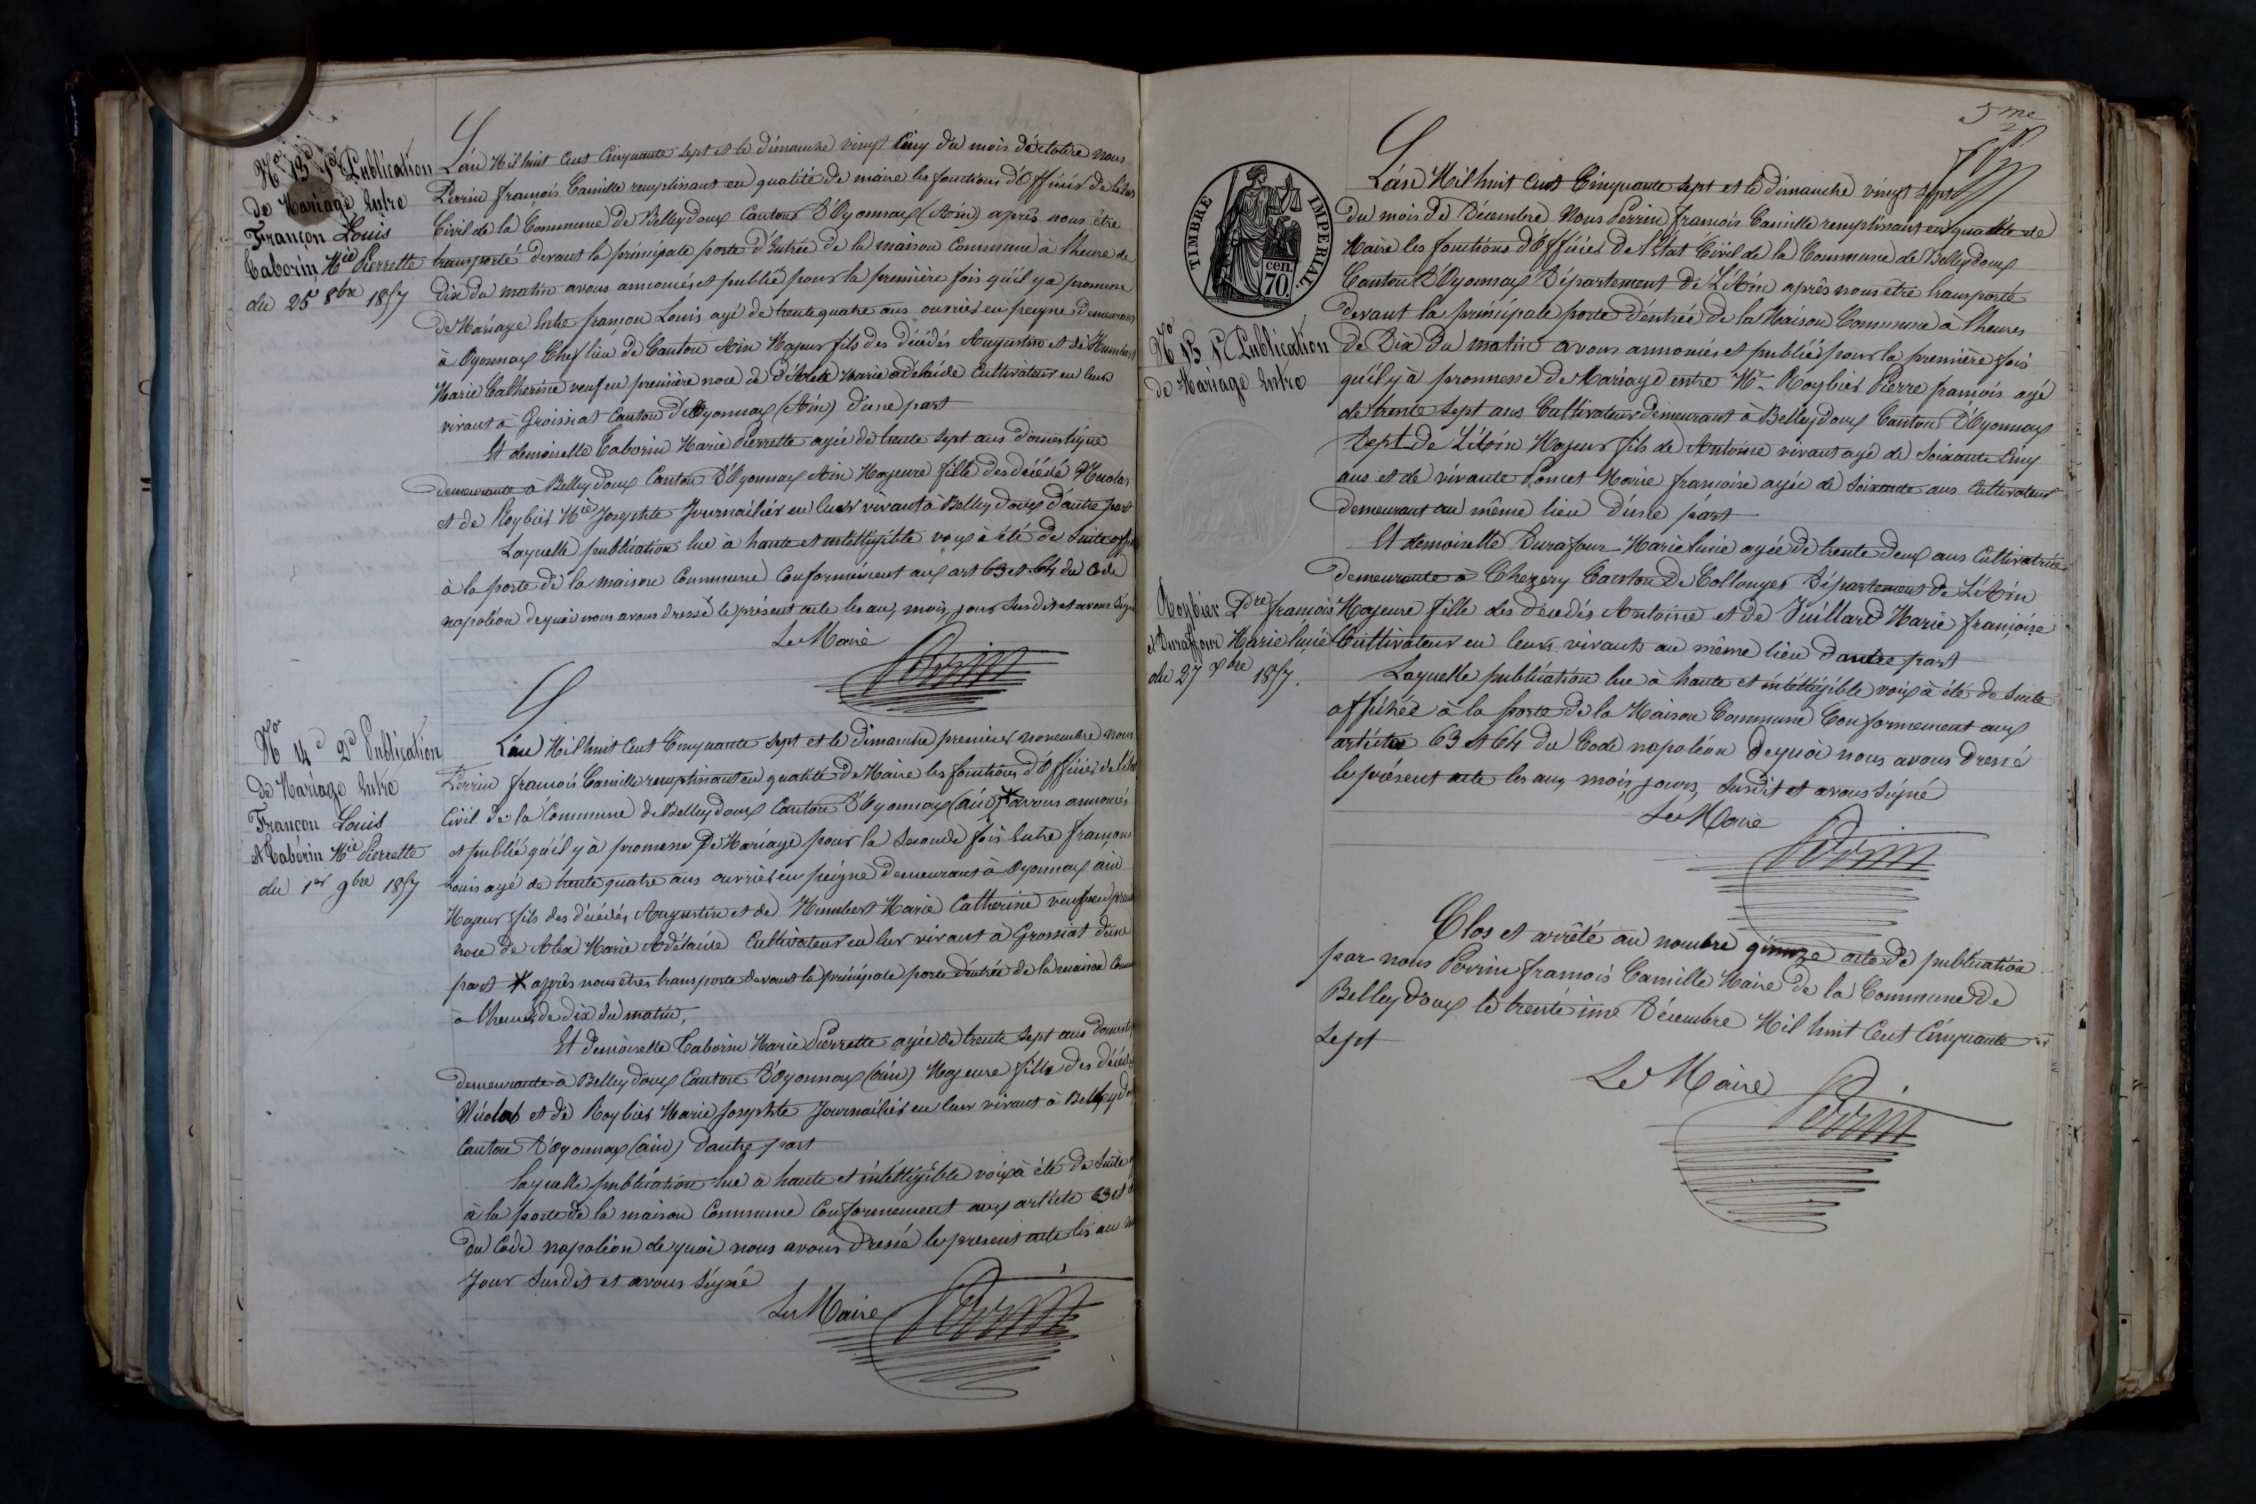 No 13e 1re Publication
de Mariage Entre
Françon Louis
Taborin Mie Pierrette
du 25 8bre 1857
L'an Mil huit Cent Cinquante sept et le dimanche vingt Cinq du mois d'octobre nous
Perrin françois Camille remplissant en qualité de maire les fonctions d'Officier de l'état
Civil de la Commune de Belleydoux Canton D'Oyonnax (Ain) après nous être
transporté devant la principale porte d'Entrée de la maison Commune à l'heure de
dix du matin avons annoncés et publié pour la première fois qu'il y a promesse
de Mariage Entre françon Louis agé de trente quatre ans ouvrier en peigne demeurant
à Oyonnax Chef lieu de Canton Ain Majeur fils des décédés Augustin et de Humbert
Marie Catherine veuf en première noce de Marie adélaide Cultivateur en leurs
vivant à Groissiat Canton d'Oyonnax (Ain) d'une part
Et demoiselle Taborin Marie Pierrette agée de trente sept ans domestique
demeurante à Belleydoux Canton D'Oyonnax Ain Majeure fille des décédé Nicolas
et de Roybier Mie Josephte Journailier en leur vivant à Belleydoux d'autre part
Laquelle publication lue à haute et intelligible voix à été de Suite
à la porte de la maison Commune Conformément aux art 63 et 64 du Code
napoléon de quoi nous avons dressé le présent acte les an, mois, jour susdit et avons signé
Le Maire
Perrin
No 14e 2e Publication
de Mariage Entre
Françon Louis
et Taborin Mie Pierrette
du 1er 9bre 1857
L'an Mil huit Cent Cinquante sept et le dimanche premier novembre nous
Perrin françois Camille remplissant en qualité de Maire les fonctions d'Officier de l'état
Civil de la Commune de Belleydoux Canton D'Oyonnax (ain) * avons annoncés
et publié qu'il y à promesse de Mariage pour la Seconde fois Entre françon
Louis agé de trente quatre ans ouvrier en peigne demeurant à Oyonnax ain
Majeur fils des décédés Augustin et de Humbert Marie Catherine veuf en
noce de Marie Adélaïde Cultivateur en leur vivant à Grossiat d'une
part * après nous êtres transporte devant la principale porte d'entrée de la maison
à l'heures de dix du matin,
Et demoiselle Taborin Marie Pierrette agée de trente sept ans
demeurante à Belleydoux Canton D'Oyonnax (ain) Majeure fille des décédés
Nicolas et de Roybier Marie Josephte Journailier en leur vivant à
Canton D'Oyonnax (ain) d'autre part
Laquelle publication lue à haute et intelligible voix à été de Suite
à la porte de la maison Commune Conformement aux article 63 et
du Code napoléon de quoi nous avons dressé le présent acte les an
Jour Susdit et avons signé
Le Maire
Perrin
5me
TIMBRE IMPERIAL.
70 cen.
No 15 1re Publication
de Mariage Entre
Roybier Pre françois
et Duraffour Marie lucie
du 27 Xbre 1857.
L'an Mil huit Cent Cinquante sept et le dimanche vingt Sept
du mois de Décembre Nous Perrin françois Camille remplissant en qualité de
Maire les fonctions d'Officier de l'état Civil de la Commune de Belleydoux
Canton D'Oyonnax Département de L'Ain après nous etre transporté
devant la principale porte d'entrée de la Maison Commune à l'heures
de Dix du matin avons annoncés et publiés pour la première fois
qu'il y à promesse de Mariage entre Mr Roybier Pierre françois agé
de trente sept ans Cultivateur demeurant à Belleydoux Canton D'Oyonnax
Dept de L'Ain Majeur fils de Antoine vivant agé de Soixante Cinq
ans et de vivante Poncet Marie françoise agée de Soixante ans Cultivateur
demeurant au même lieu d'une part
Et demoiselle Durafour Marie lucie agée de trente deux ans Cultivatrice
demeurante à Chezery Canton de Collonges Département de L'Ain
Majeure fille des décedés Antoine et de Vuillard Marie françoise
Cultivateur en leurs vivants au même lieu d'autre part
Laquelle publication lue à haute et intelligible voix à été de Suite
affichée à la porte de la Maison Commune Conformement aux
article 63 et 64 du Code napoléon De quoi nous avons Dressé
le présent acte les an, mois, jours, susdit et avons signé
Le Maire
Perrin
Clos et arrêté au nombre quinze acte de publication
par nous Perrin françois Camille Maire de la Commune de
Belleydoux le trente une Décembre Mil huit Cent Cinquante
Sept
Le Maire
Perrin